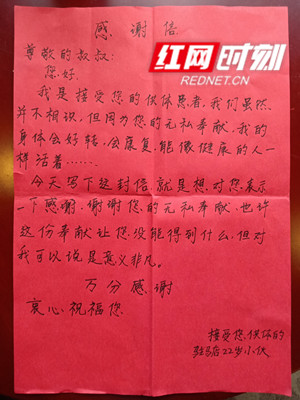 感谢信
红网时刻
REDNET.CN
尊敬的叔叔:
您好.
我是接受您的供体患者,我们虽然
并不相识,但因为您的无私奉献,我的
身体会好转,会康复,能像健康的人一
样活着......
今天写下这封信,就是想对您表示
一下感谢,谢谢您的无私奉献,也许
这份奉献让您没能得到什么,但对
我可以说是意义非凡.
万分感谢
衷心祝福您
接受您供体的
驻马店22岁小伙